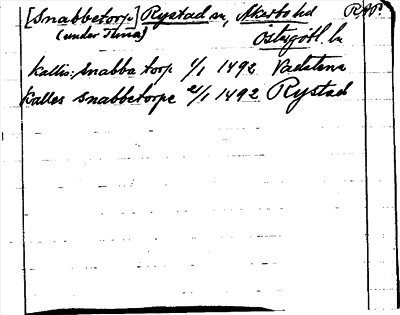 [Snabbetorp] Rystad sn, Åkerbo hd RAP
(under )
Östergötl. ln
kallis: Snabba torp 1/1 1492 Vadstena
Kalles snabbetorpe 2/1 1492 Rystad